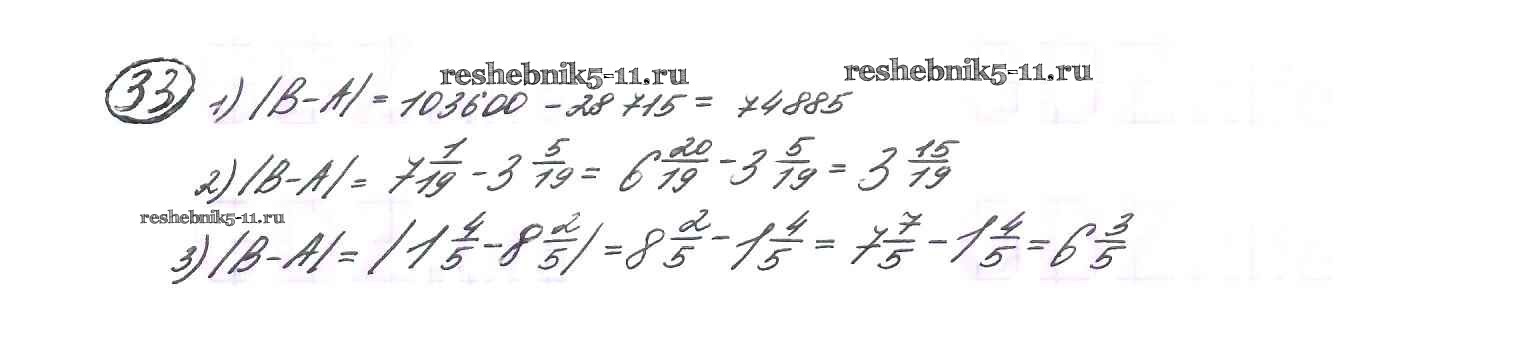 reshebnik5-11.ru reshebnik5-11.ru
33 1) |B-A| = 103600 - 28715 = 74885
2) |B-A| = 7 1/19 - 3 5/19 = 6 20/19 - 3 5/19 = 3 15/19
reshebnik5-11.ru
3) |B-A| = |1 4/5 - 8 2/5| = 8 2/5 - 1 4/5 = 7 7/5 - 1 4/5 = 6 3/5